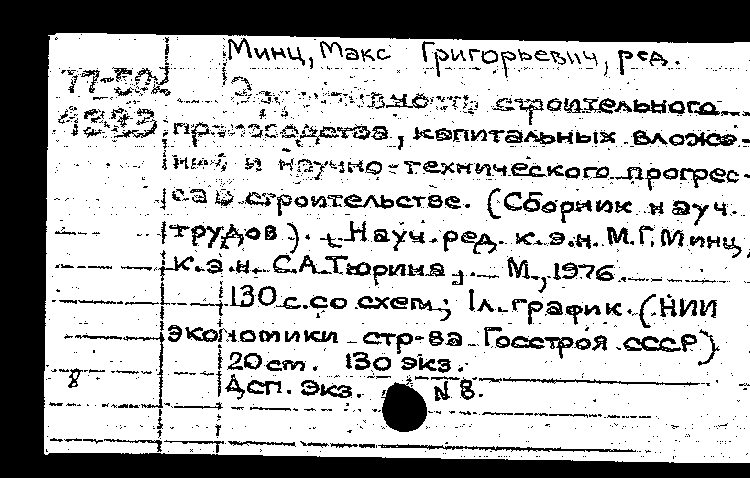 Минц, Макс Григорьевич, ред.
77-502
4383
Эффективность строительного
производства, капитальных вложе-
ний и научно-технического прогрес-
са в строительстве. (Сборник науч.
трудов). [Науч. ред. к.э.н. М.Г. Минц,
к.э.н. С.А. Тюрина]. — М., 1976.
130 с. со схем; 1 л. график. (НИИ
экономики стр-ва Госстроя СССР)
20 см. 130 экз.
8
Дсп. Экз. N 8.